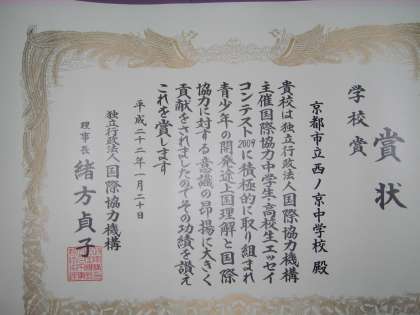 賞状
学校賞
京都市立西ノ京中学校 殿
貴校は独立行政法人国際協力機構
主催国際協力中学生・高校生エッセイ
コンテスト2009に積極的に取り組まれ
青少年の開発途上国理解と国際
協力に対する意識の昂揚に大きく
貢献をされましたのでその功績を讃え
これを賞します
平成二十二年一月二十日
独立行政法人国際協力機構
理事長 緒方貞子